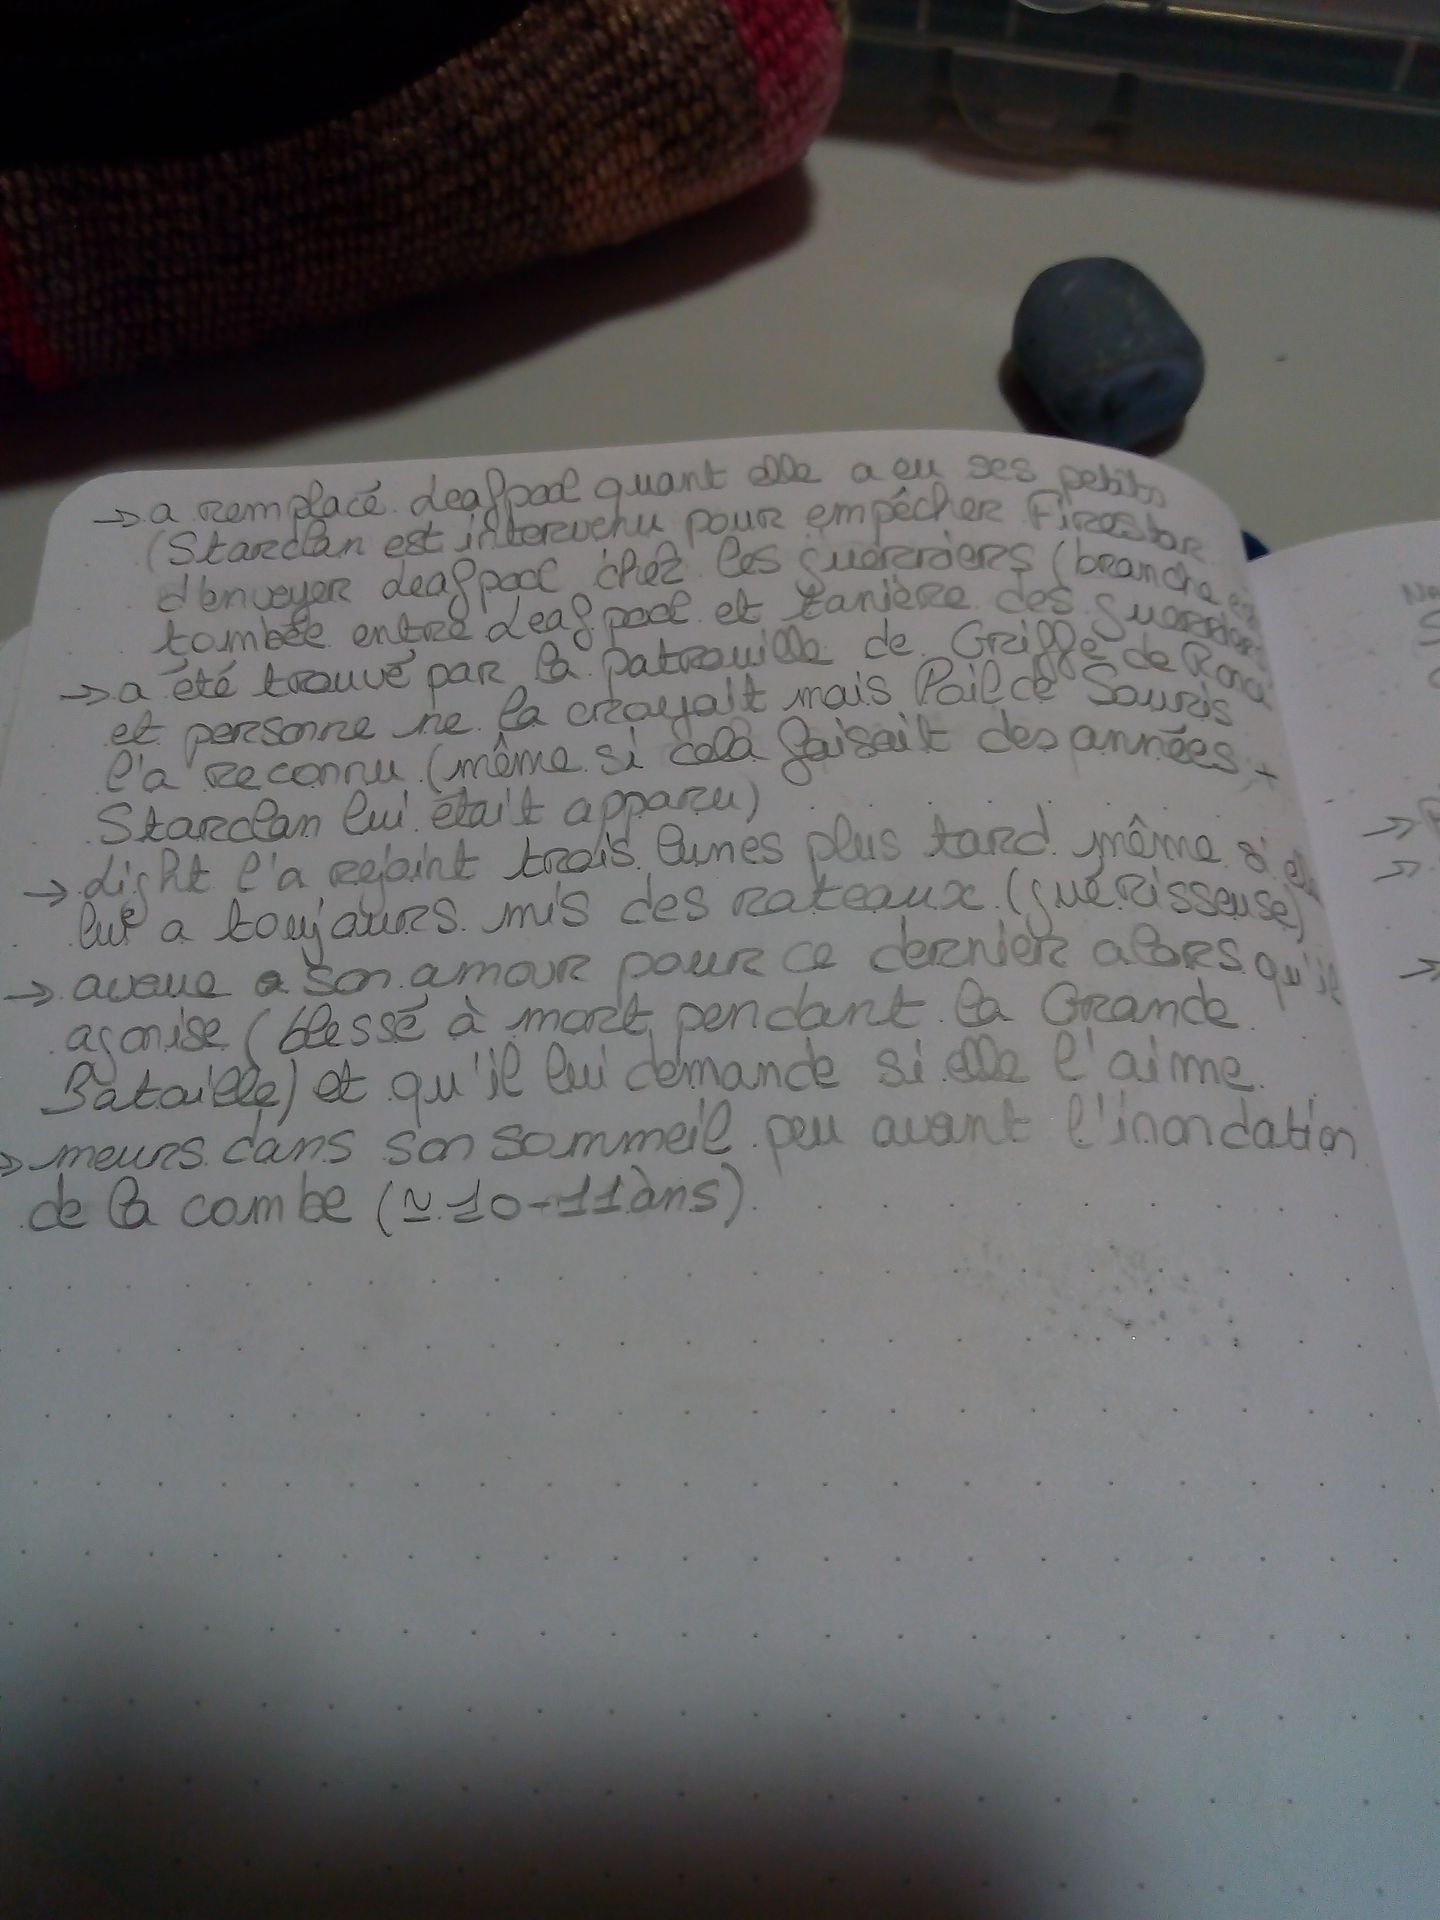 → a remplacé Leafpool quant elle a eu ses petits
(Starclan est intervenu pour empêcher Firestar
d'envoyer Leafpool chez les guerriers (branche
tombée entre Leafpool et tanière des guerriers
→ a été trouvé par la patrouille de Griffe de Ronce
et personne ne la croyait mais Poil de Souris
l'a reconnu (même si cela faisait des années +
Starclan lui était apparu)
→ Light l'a rejoint trois lunes plus tard même si elle
lui a toujours mis des rateaux (guérisseuse)
→ avoue son amour pour ce dernier alors qu'il
agonise (blessé à mort pendant la Grande
Bataille) et qu'il lui demande si elle l'aime.
→ meurs dans son sommeil peu avant l'inondation
de la combe (≃ 10-11 ans)